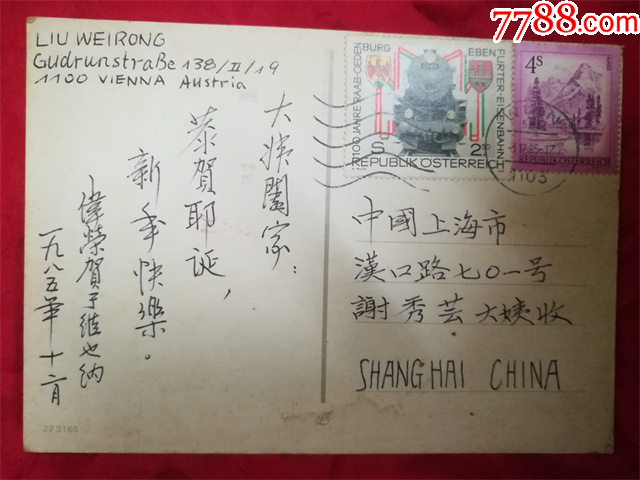 7788.com
LIU WEIRONG
Gudrunstraße 138/II/19
1100 VIENNA Austria
大姨闔家：
恭賀耶诞，
新年快樂。
偉榮賀于維也纳
一九八五年十二月
BURG
EBEN
FURTER-EISENBAHN
100 JAHRE RAAB-OEDEN
S 2
REPUBLIK ÖSTERREICH
4S
REPUBLIK ÖSTERREICH
1103
中國上海市
漢口路七〇一号
謝秀芸大姨收
SHANGHAI CHINA
22 3165